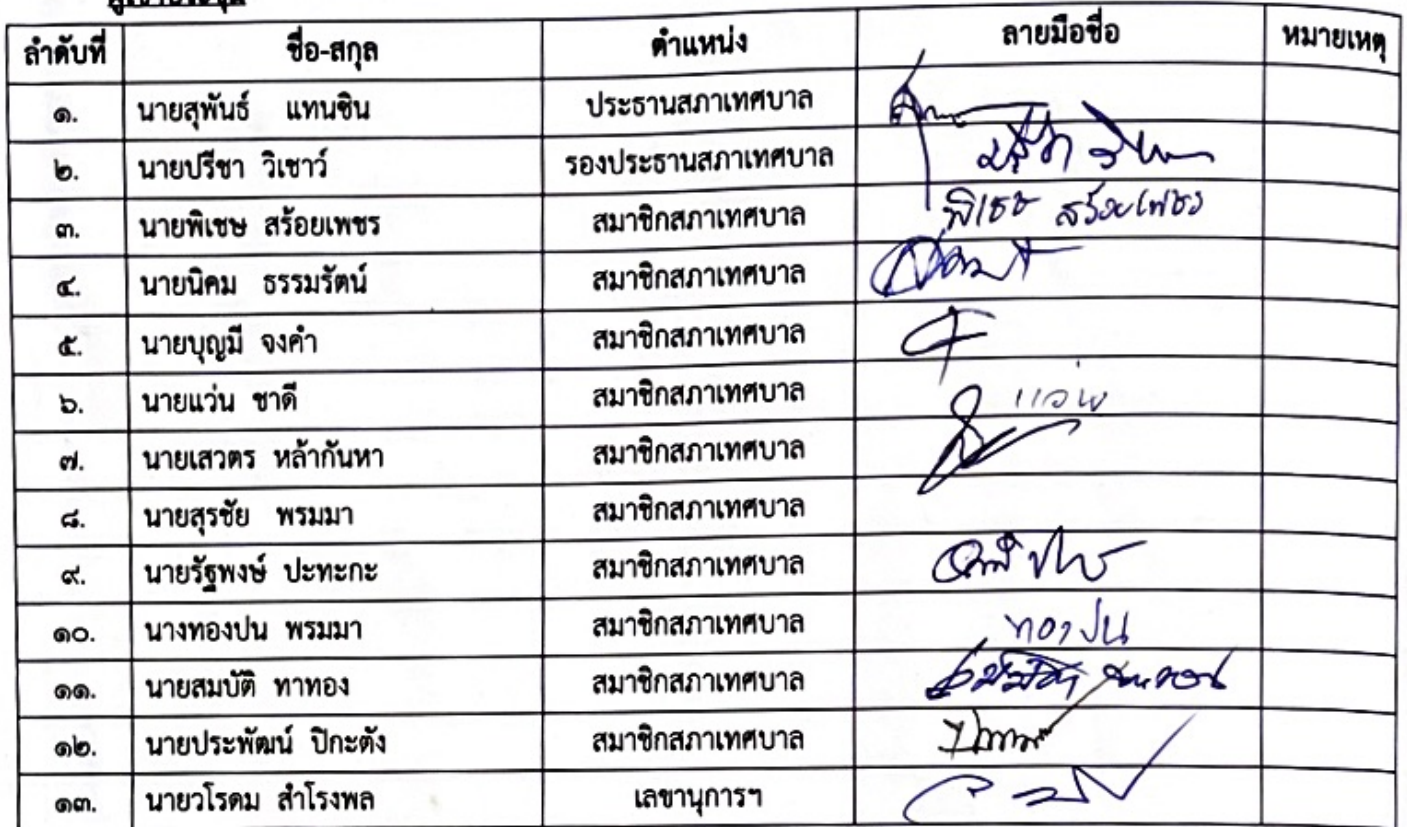 ลำดับที่ ชื่อ-สกุล ตำแหน่ง ลายมือชื่อ หมายเหตุ
๑. นายสุพันธ์ แทนซิน ประธานสภาเทศบาล
๒. นายปรีชา วิเชาว์ รองประธานสภาเทศบาล ปรีชา
๓. นายพิเชษ สร้อยเพชร สมาชิกสภาเทศบาล พิเชษ สร้อยเพชร
๔. นายนิคม ธรรมรัตน์ สมาชิกสภาเทศบาล
๕. นายบุญมี จงคำ สมาชิกสภาเทศบาล
๖. นายแว่น ชาดี สมาชิกสภาเทศบาล แว่น
๗. นายเสวตร หล้ากันหา สมาชิกสภาเทศบาล
๘. นายสุรชัย พรมมา สมาชิกสภาเทศบาล
๙. นายรัฐพงษ์ ปะทะกะ สมาชิกสภาเทศบาล
๑๐. นางทองปน พรมมา สมาชิกสภาเทศบาล ทองปน
๑๑. นายสมบัติ ทาทอง สมาชิกสภาเทศบาล
๑๒. นายประพัฒน์ ปิกะตัง สมาชิกสภาเทศบาล
๑๓. นายวโรดม สำโรงพล เลขานุการฯ